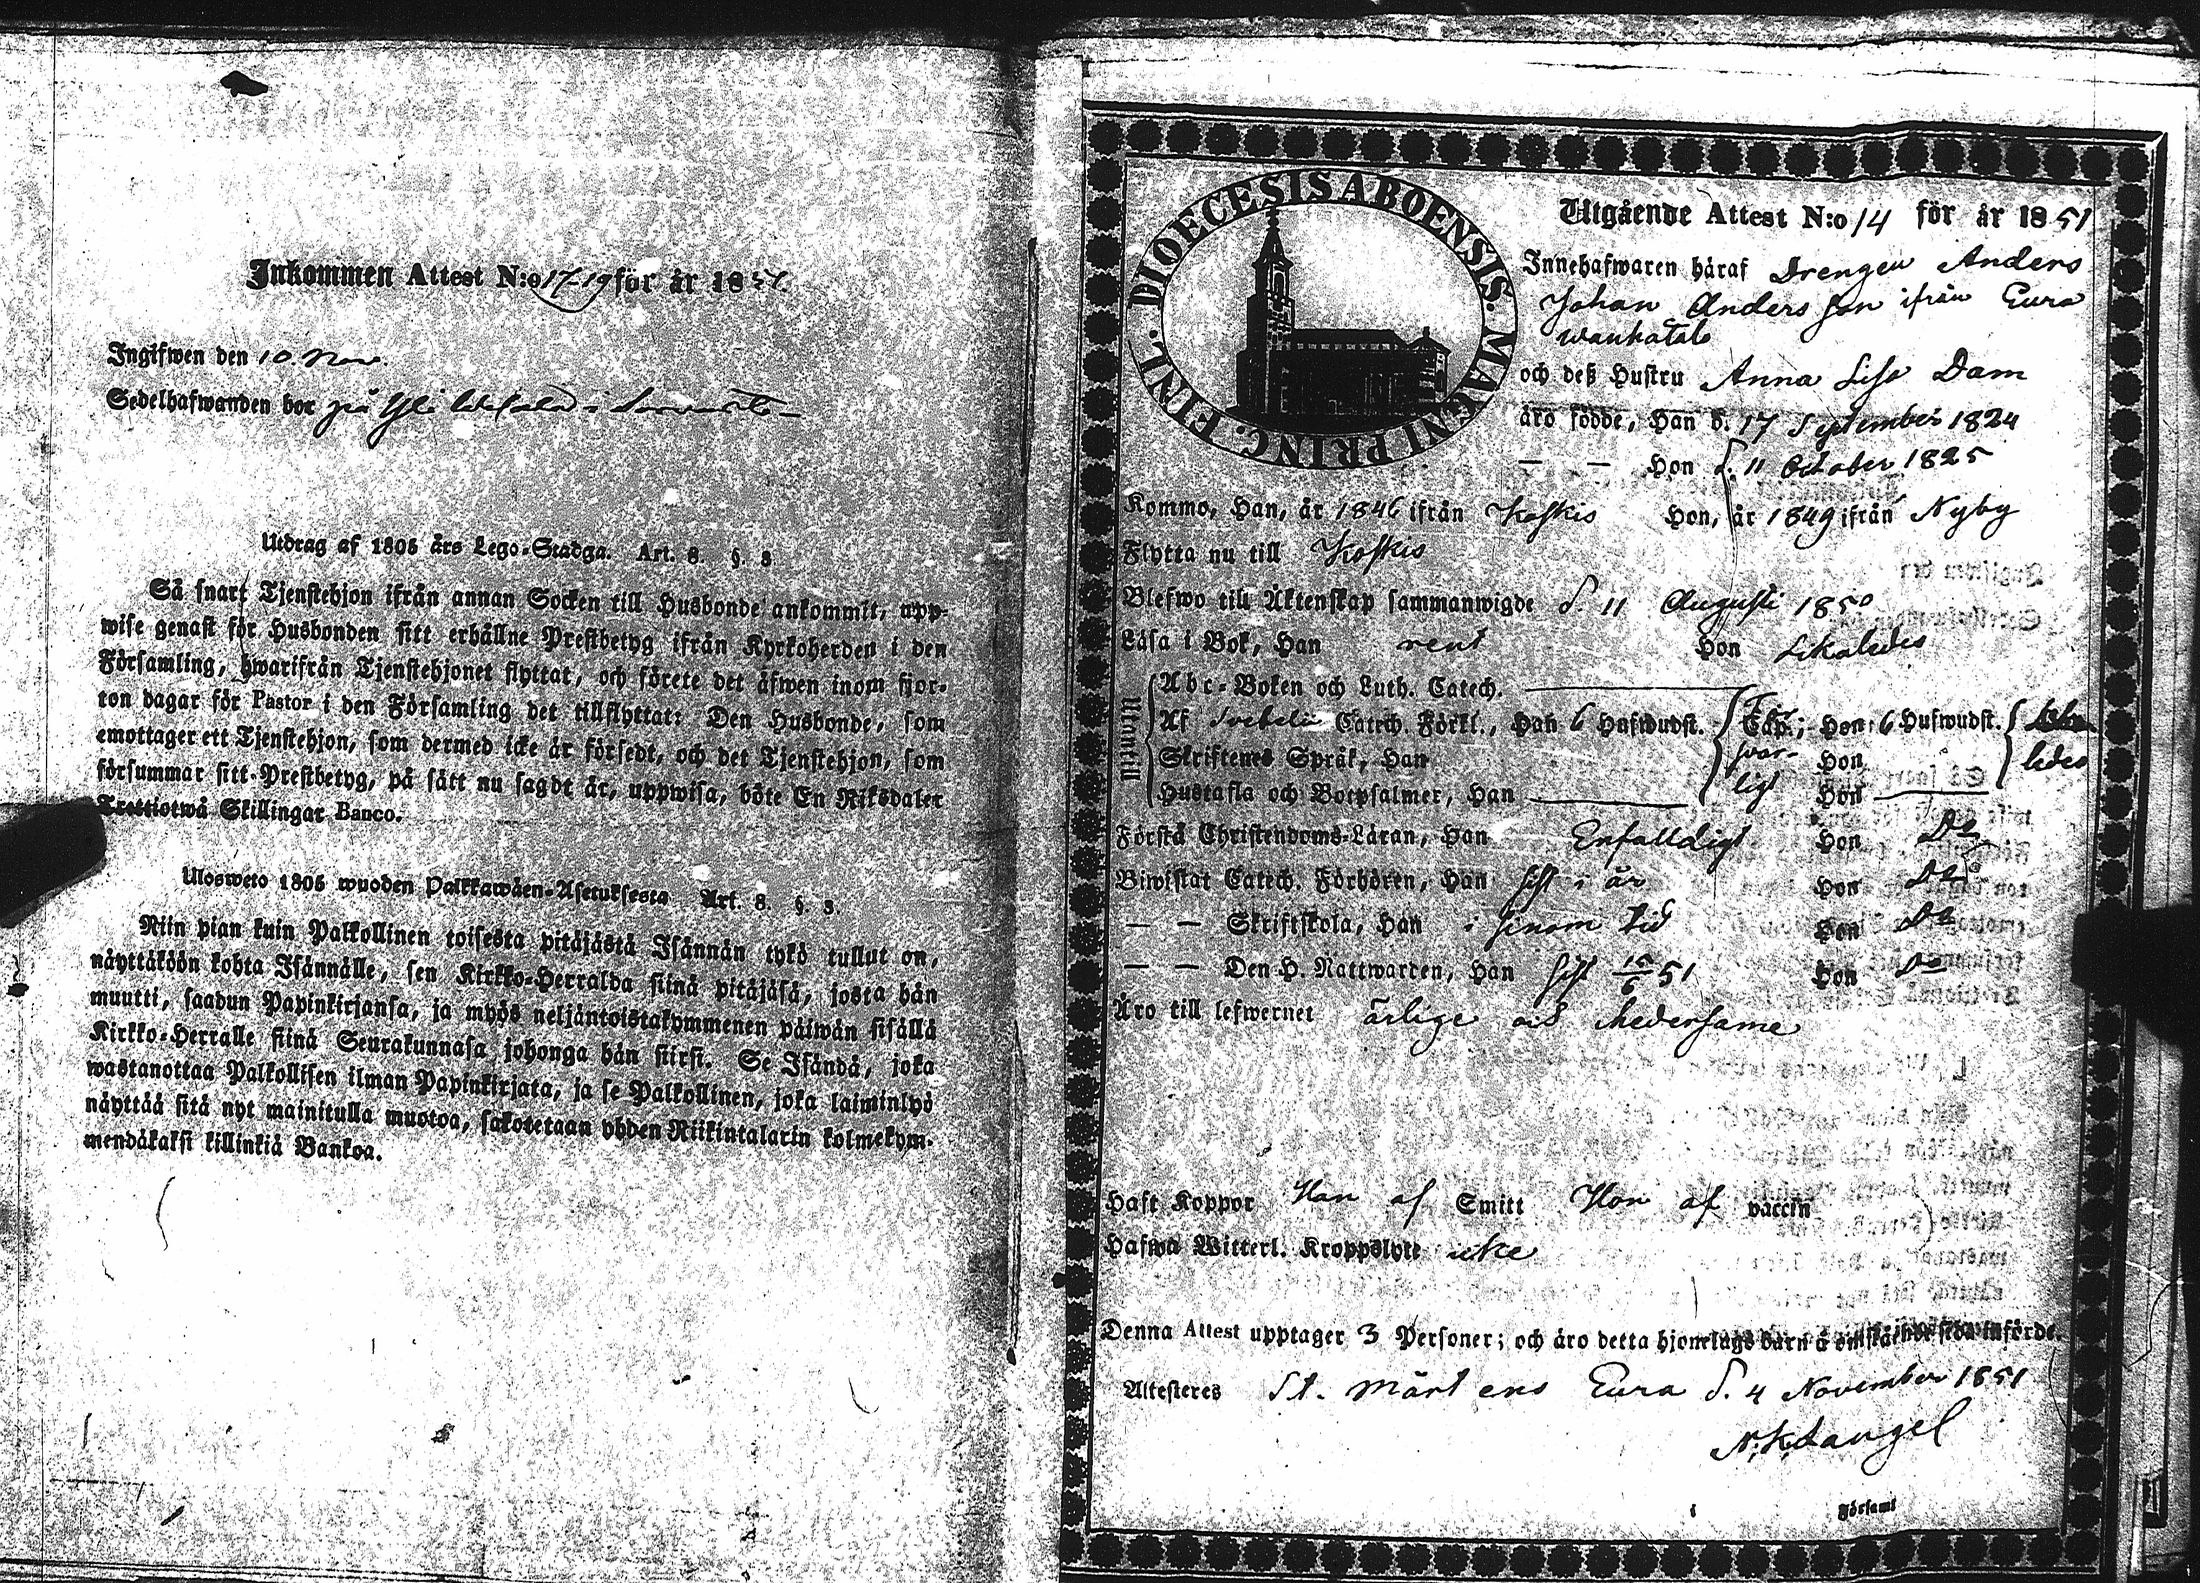 Inkommen Attest N:o 17-19 för år 1851.
Ingifwen den 10 Nov.
Sedelhafwanden bor på Yli
Utdrag af 1805 års Lego-Stadga. Art. 8. §. 3
Så snart Tjenstehjon ifrån annan Socken till Husbonde ankommit, upp-
wise genast för Husbonden sitt erhållne Prestbetyg ifrån Kyrkoherden i den
Församling, hwarifrån Tjenstehjonet flyttat, och förete det äfwen inom fjor-
ton dagar för Pastor i den Församling det tillflyttat: Den Husbonde, som
emottager ett Tjenstehjon, som dermed icke är försedt, och det Tjenstehjon, som
försummar sitt Prestbetyg, på sätt nu sagdt är, uppwisa, böte En Riksdaler
Trettiotwå Skillingar Banco.
Ulosweto 1805 wuoden Palkkawäen-Asetuksesta Art. 8. §. 3.
Niin pian kuin Palkollinen toisesta pitäjästä Isännän tykö tullut on,
näyttäköön kohta Isännälle, sen Kirkko-Herralda siinä pitäjäsä, josta hän
muutti, saadun Papinkirjansa, ja myös neljäntoistakymmenen päiwän sisällä
Kirkko-Herralle siinä Seurakunnasa johonga hän siirsi. Se Isändä, joka
wastanottaa Palkollisen ilman Papinkirjata, ja se Palkollinen, joka laiminlyö
näyttää sitä nyt mainitulla muotoa, sakotetaan yhden Riikintalarin kolmekym-
mendäkaksi killinkiä Bankoa.
DIOECESIS ABOENSIS. MAGNI PRINC. FINL.
Utgående Attest N:o 14 för år 1851
Innehafwaren häraf Drengen Anders
Johan Andersson ifrån Eura
wauhatalo
och deß Hustru Anna Lisa Dam
äro födde, Han d. 17 September 1824
— — Hon d. 11 October 1825
Kommo, Han, år 1846 ifrån Koskis Hon, år 1849 ifrån Nyby
Flytta nu till Koskis
Blefwo till Äktenskap sammanwigde d. 11 Augusti 1850
Läsa i Bok, Han rent Hon Likaledes
Utantill
Abc-Boken och Luth. Catech.
Af Svebelii Catech. Förkl., Han 6 Hufwudst. Cap.; Hon 6 Hufwudst. ledes
Skriftenes Språk, Han Hon
Hustafla och Botpsalmer, Han Hon
Förstå Christendoms-Läran, Han Enfalldigt Hon Do
Biwistat Catech. Förhören, Han sist i år Hon Do
— — Skriftskola, Han i sinom tid Hon Do
— — Den H. Nattwarden, Han sist 15/6 51 Hon Do
Äro till lefwernet ärlige och skedersame
Haft Koppor Han af Smitt Hon af vaccin
Hafwa Witterl. Kroppslyte icke
Denna Attest upptager 3 Personer; och äro detta hjonelags barn å omstående sida införde.
Attesteres St. Mårtens Eura d. 4 November 1851
N. K. Langel
i Församl